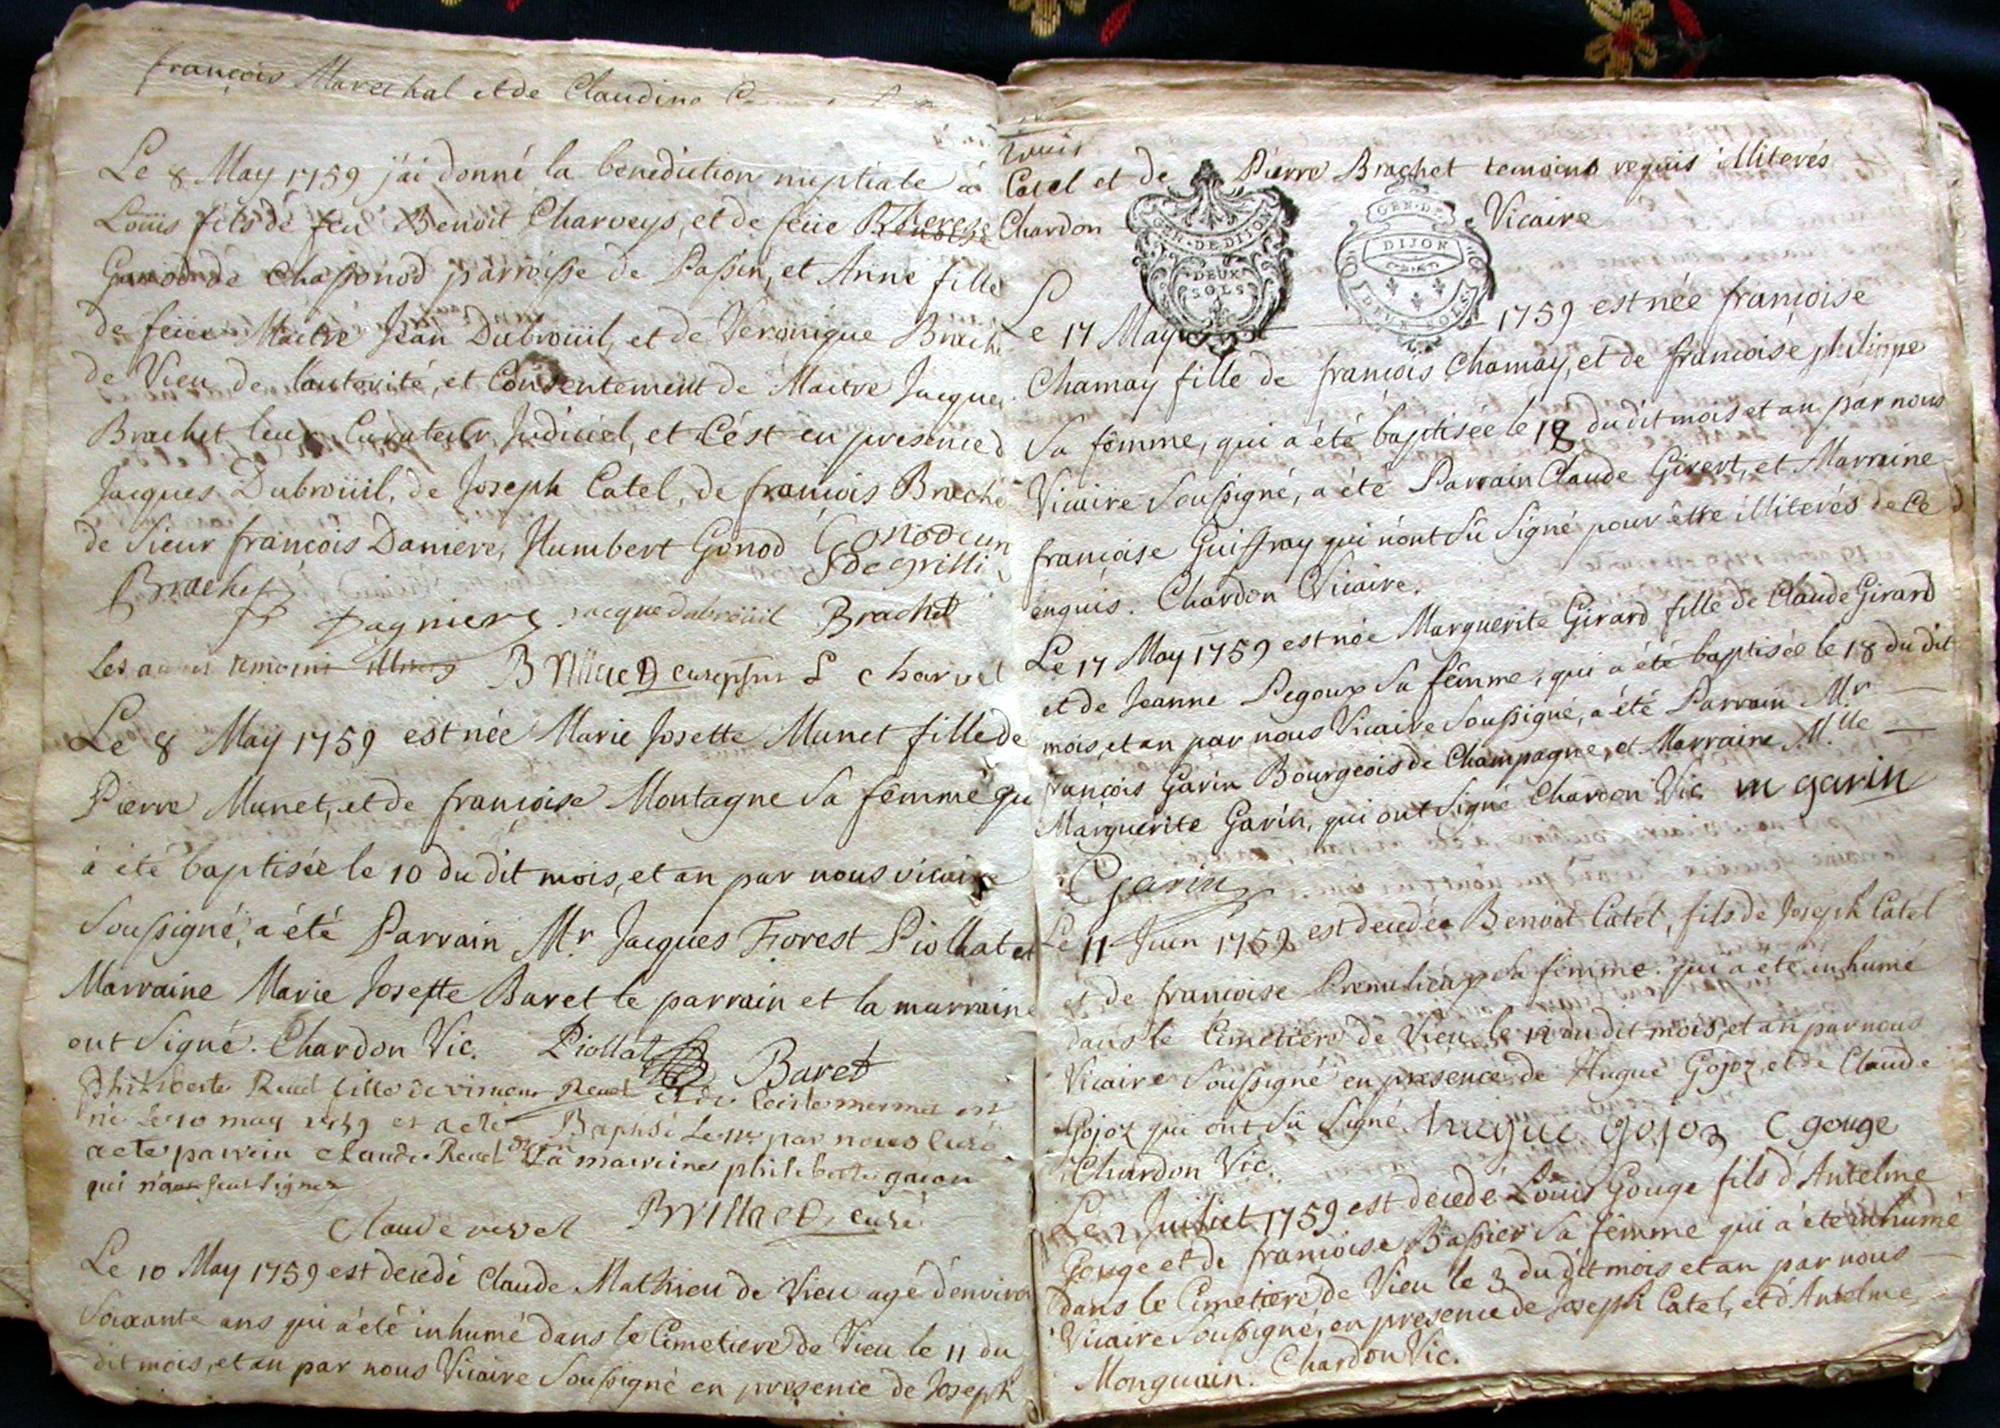 françois Marechal et de Claudine
Le 8 May 1759 j'ai donné la benediction nuptiale à
Loüis fils de feu Benoit Charveys, et de feüe Therese
Gonod de Chassonod parroisse de Passin, et Anne fille
de feüe Maitre Jean Dubroüil, et de Veronique Brache
de Vieu de l'autorité, et Consentement de Maitre Jacque
Brachet leur Curateur Judiciel, et C'ést en presence d
Jacques Dubroüil, de Joseph Catel, de francois Brache
de Sieur francois Daniere, Humbert Gonod Gonod un
Brachet
Dagniere jacque dubroüil Brachet
Les autres temoins Brillaed curé L charvet
Le 8 May 1759 est née Marie Josette Munet fille de
Pierre Munet, et de françoise Montagne sa fêmme qu
à été baptisée le 10 du dit mois, et an par nous vicaire
Soussigné, a été Parrain Mr. Jacques Forest Piollat et
Marraine Marie Josette Baret le parrain et la marraine
ont Signé. Chardon Vic. Piollat Baret
philiberte Revel fille de Revel et de mermet est
né Le 10 may 1759 et a eté Baptisé Le par nous Curé
a ete parrein Claude Revel et La marreine philiberte
qui signer
Claude revel Brillaed curé
Le 10 May 1759 est decedé Claude Mathieu de Vieu agé d'enviro
Soixante ans qui à été inhumé dans le Cimetiere de Vieu le 11 du
dit mois, et an par nous Vicaire Soussigné en presence de Joseph
trois
Catel et de Pierre Brachet temoins requis illiterés
Chardon Vicaire
GEN. DE DIJON
DEUX
SOLS
GEN. DE
DIJON
DEUX SOLS
Le 17 May 1759 est née françoise
Chamay fille de françois Chamay, et de francoise philippe
Sa fêmme, qui a été baptisée le 18 du dit mois et an par nous
Vicaire Soussigné, a été Parrain Claude Girert, et Marraine
françoise Guiffray qui n'ont sû signé pour être illiterés de ce
enquis. Chardon Vicaire.
Le 17 May 1759 est née Marguerite Girard fille de Claude Girard
et de Jeanne Pegoux sa fêmme, qui a été baptisée le 18 du dit
mois, et an par nous Vicaire Soussigné, a été Parrain Mr.
françois Garin Bourgeois de Champagne, et Marraine M.lle
Marguerite Garin, qui ont signé Chardon Vic. m garin
Garin
Le 11 Juin 1759 est decedée Benoit Catel, fils de Joseph Catel
et de françoise sa fêmme. qui a été inhumé
dans le Cimetiere de Vieu le 12 du dit mois, et an par nous
Vicaire Soussigné en presence de Hugue Gojoz, et de Claude
Gojoz qui ont sû Signé hugue gojoz C gouge
Chardon Vic.
Le 2 Juillet 1759 est decedé Loüis Gouge fils d'Antelme
Gouge et de francoise Bassier sa fêmme qui à été inhumé
dans le Cimetiere de Vieu le 3 du dit mois et an par nous
Vicaire Soussigné, en presence de Joseph Catel, et d'Antelme
Monguain. Chardon Vic.